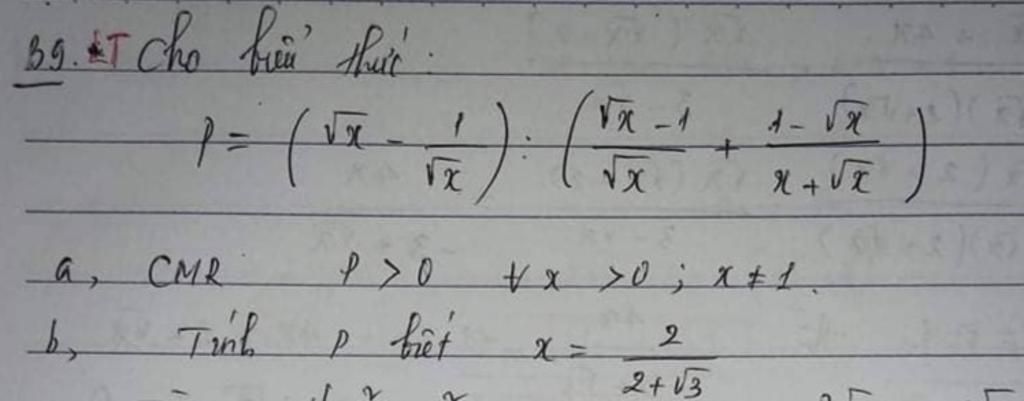 B9. T Cho biểu thức :
P = ( √x - 1/√x ) : ( (√x - 1)/√x + (1 - √x)/(x + √x) )
a, CMR P > 0 ∀ x > 0 ; x ≠ 1.
b, Tính P biết x = 2/(2+√3)